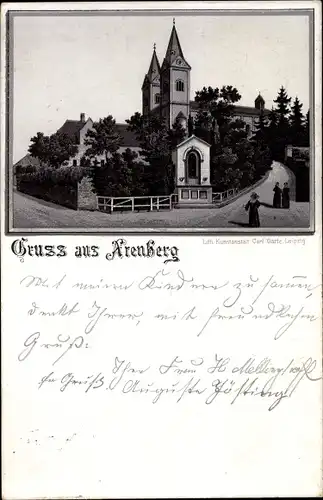 Gruss aus Arenberg
Lith. Kunstanstalt Carl Garte, Leipzig
Mit meinen Kindern zusammen,
denkt Ihrer, mit freundlichem
Gruß:
Ihre Frau H.
Gruß Auguste